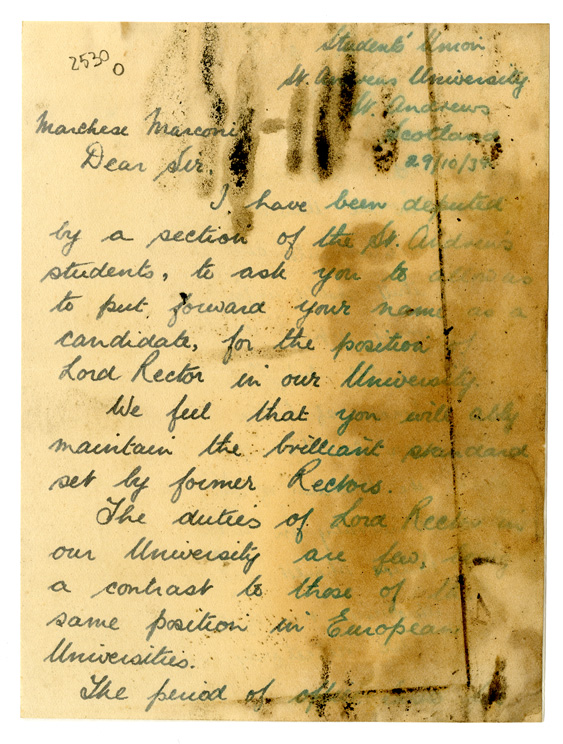 2530
0
Students' Union
St. Andrews University
St. Andrews
Scotland
29/10/33
Marchese Marconi
Dear Sir,
I have been deputed
by a section of the St. Andrews
students, to ask you to allow us
to put forward your name as a
candidate, for the position of
Lord Rector in our University.
We feel that you will ably
maintain the brilliant standard
set by former Rectors.
The duties of Lord Rector in
our University are few,
a contrast to those of the
same position in European
Universities.
The period of office